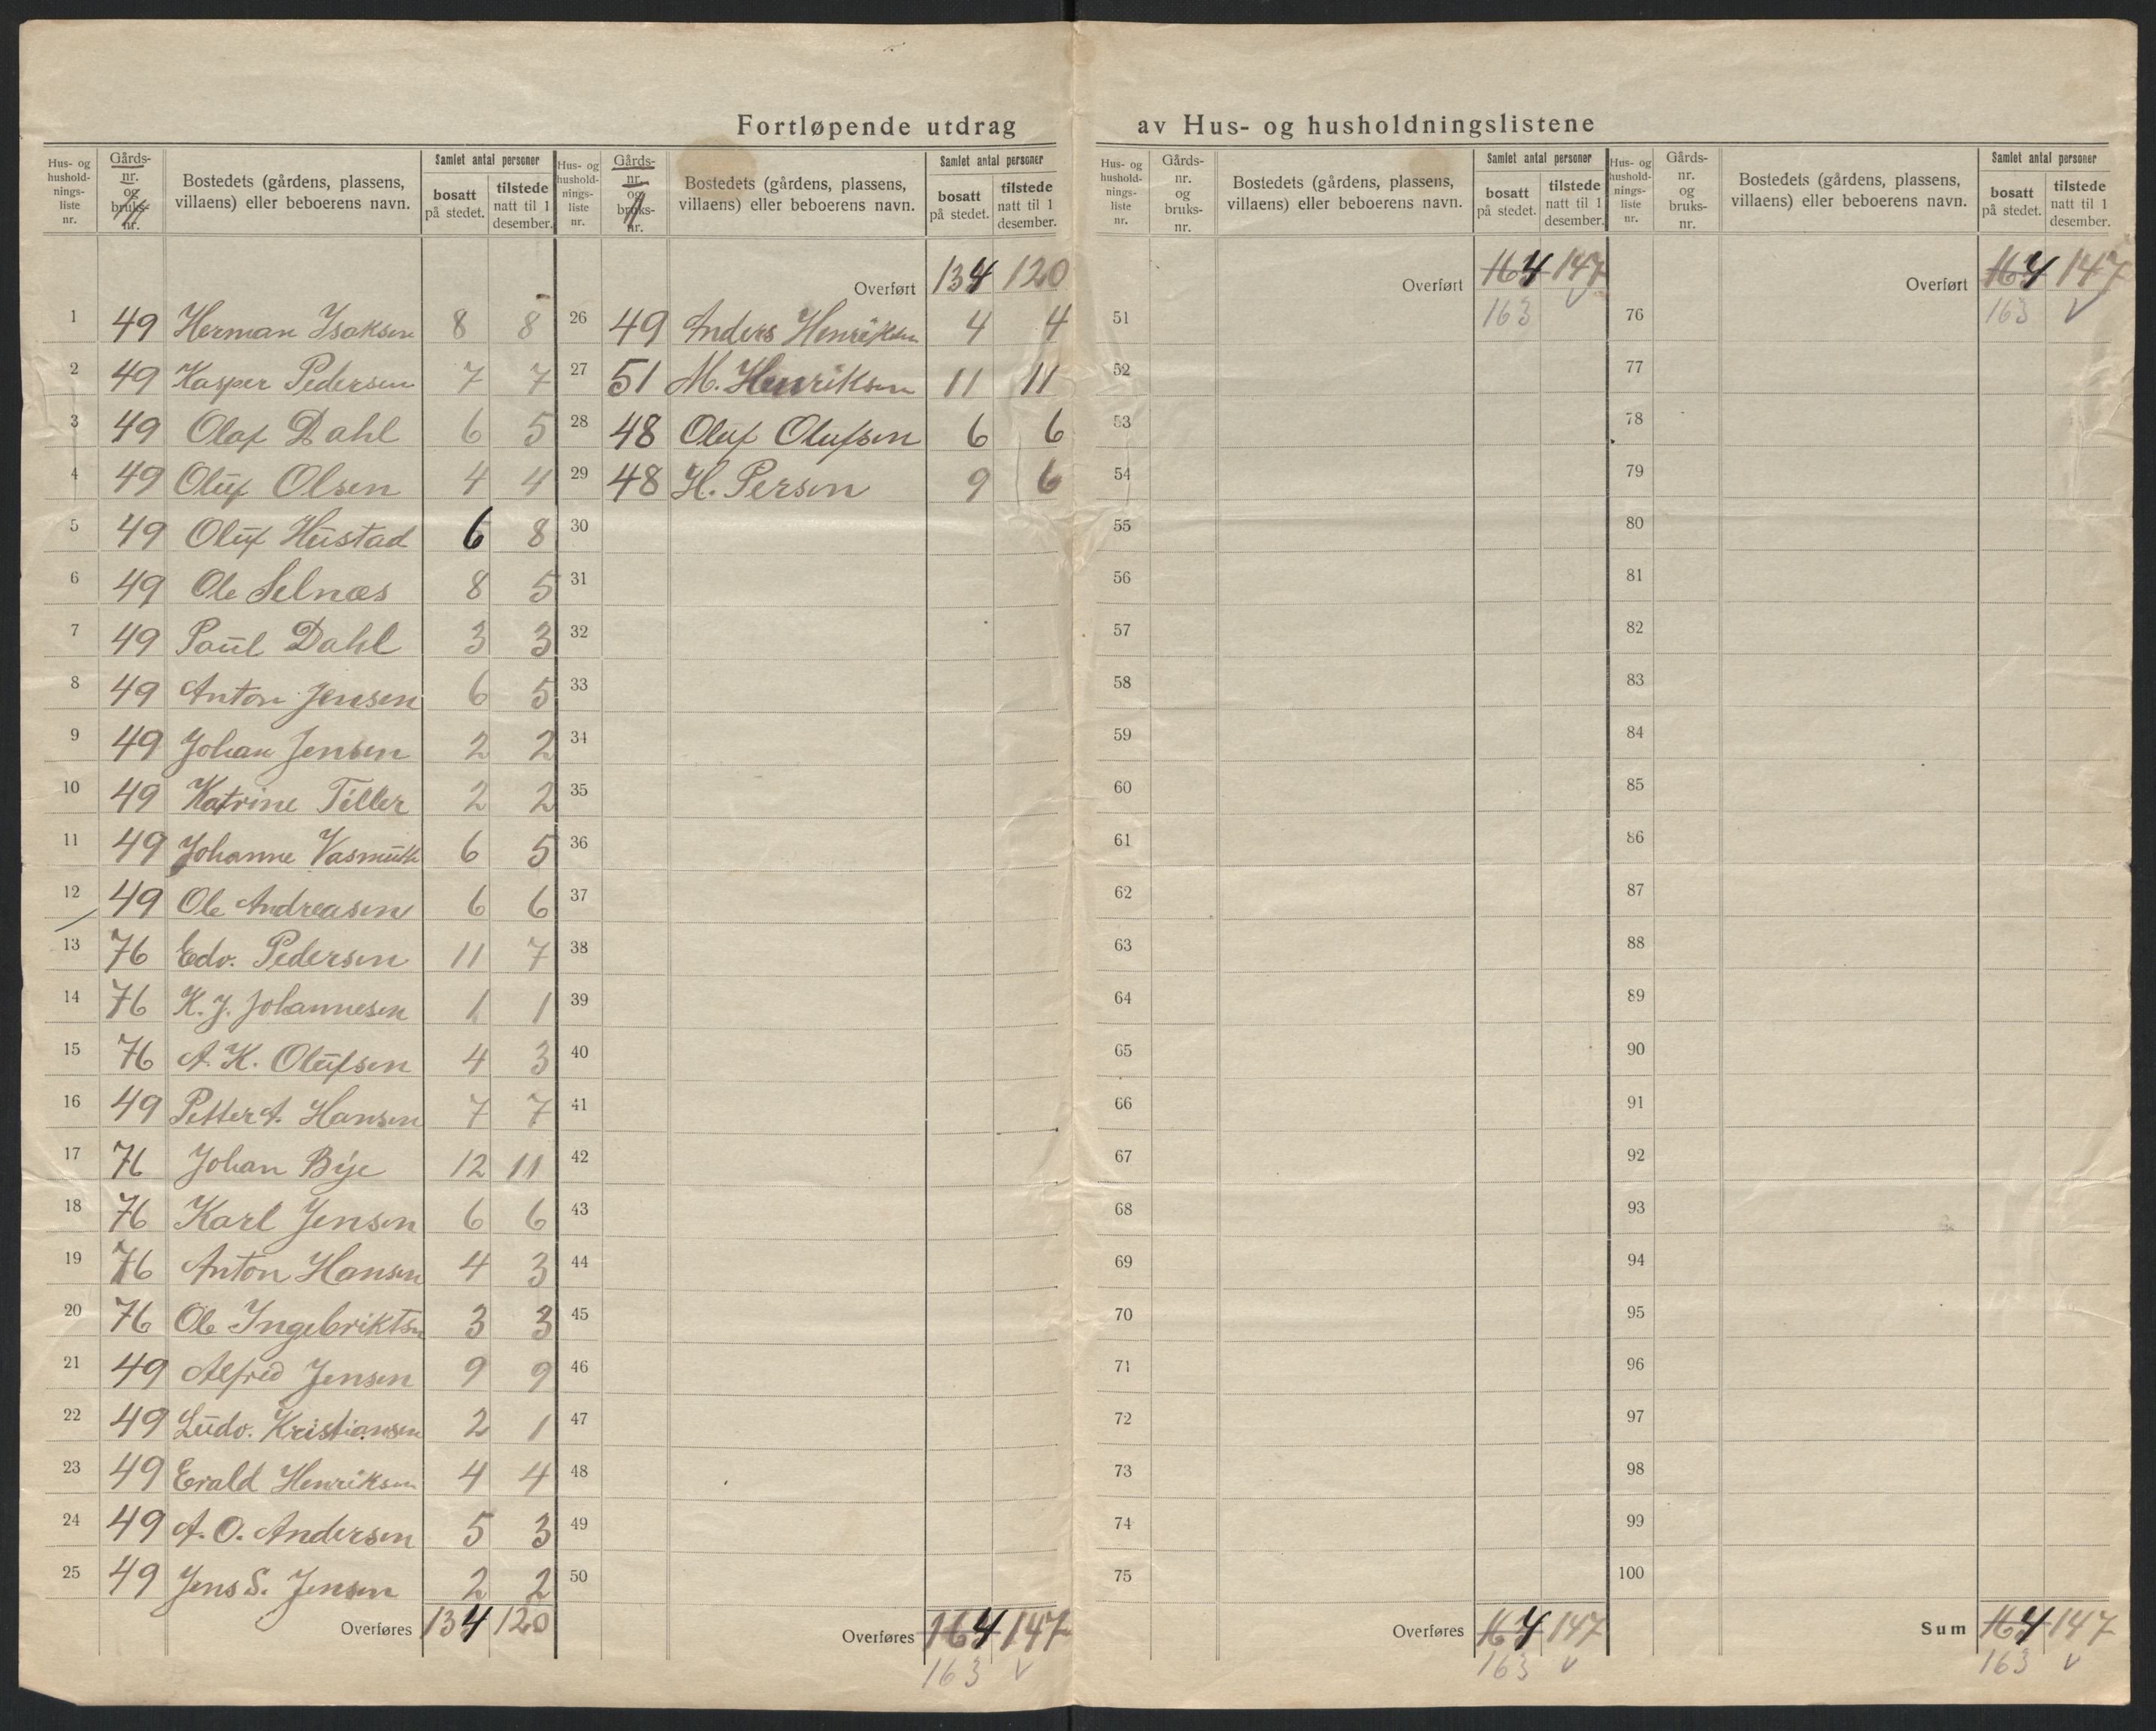 Fortløpende utdrag av Hus- og husholdningslistene
Hus- og
hushold-
nings-
liste
nr.
Gårds-
nr.
og
bruks-
nr.
Bostedets (gårdens, plassens,
villaens) eller beboerens navn.
Samlet antal personer
bosatt
på stedet.
tilstede
natt til 1
desember.
1 49 Herman Isaksen 8 8
2 49 Kasper Pedersen 7 7
3 49 Olaf Dahl 6 5
4 49 Oluf Olsen 4 4
5 49 Oluf Hustad 6 8
6 49 Ole Selnæs 8 5
7 49 Paul Dahl 3 3
8 49 Anton Jensen 6 5
9 49 Johan Jensen 2 2
10 49 Katrine Tiller 2 2
11 49 Johanne Vasmuth 6 5
12 49 Ole Andreasen 6 6
13 76 Edv. Pedersen 11 7
14 76 K. J. Johannesen 1 1
15 76 A. K. Olufsen 4 3
16 49 Petter A. Hansen 7 7
17 76 Johan Bye 12 11
18 76 Karl Jensen 6 6
19 76 Anton Hansen 4 3
20 76 Ole Ingebriktsn 3 3
21 49 Alfred Jensen 9 9
22 49 Ludv. Kristiansen 2 1
23 49 Evald Henriksen 4 4
24 49 A. O. Andersen 5 3
25 49 Jens S. Jensen 2 2
Overføres 134 120
Hus- og
hushold-
nings-
liste
nr.
Gårds-
nr.
og
bruks-
nr.
Bostedets (gårdens, plassens,
villaens) eller beboerens navn.
Samlet antal personer
bosatt
på stedet.
tilstede
natt til 1
desember.
Overført 134 120
26 49 Anders Henriksen 4 4
27 51 M. Henriksen 11 11
28 48 Oluf Olufsen 6 6
29 48 H. Persen 9 6
30
31
32
33
34
35
36
37
38
39
40
41
42
43
44
45
46
47
48
49
50
Overføres 164 147
163 v
Hus- og
hushold-
nings-
liste
nr.
Gårds-
nr.
og
bruks-
nr.
Bostedets (gårdens, plassens,
villaens) eller beboerens navn.
Samlet antal personer
bosatt
på stedet.
tilstede
natt til 1
desember.
Overført 164 147
163 v
51
52
53
54
55
56
57
58
59
60
61
62
63
64
65
66
67
68
69
70
71
72
73
74
75
Overføres 164 147
163 v
Hus- og
hushold-
nings-
liste
nr.
Gårds-
nr.
og
bruks-
nr.
Bostedets (gårdens, plassens,
villaens) eller beboerens navn.
Samlet antal personer
bosatt
på stedet.
tilstede
natt til 1
desember.
Overført 164 147
163 v
76
77
78
79
80
81
82
83
84
85
86
87
88
89
90
91
92
93
94
95
96
97
98
99
100
Sum 164 147
163 v